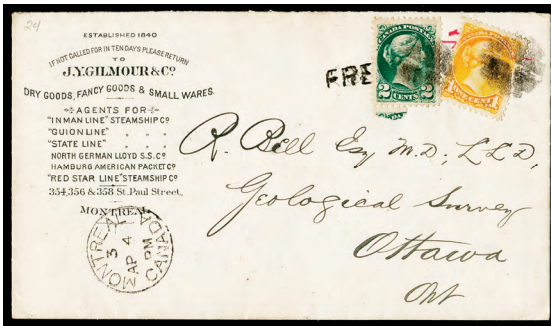 24
ESTABLISHED 1840
IF NOT CALLED FOR IN TEN DAYS PLEASE RETURN
TO
J.Y.GILMOUR & Co.
DRY GOODS, FANCY GOODS & SMALL WARES.
AGENTS FOR
"INMAN LINE" STEAMSHIP Co
"GUION LINE" " " "
"STATE LINE" " " "
NORTH GERMAN LLOYD S.S. Co
HAMBURG AMERICAN PACKET Co
"RED STAR LINE" STEAMSHIP Co
354,356 & 358 St. Paul Street,
MONTREAL
MONTREAL
3
AP 4
PM
CANADA
FREE
CANADA POSTAGE
2 CENTS 2
CANADA POSTAGE
1 ONE CENT 1
R. Bell Esq M.D., LLD,
Geological Survey
Ottawa
Ont